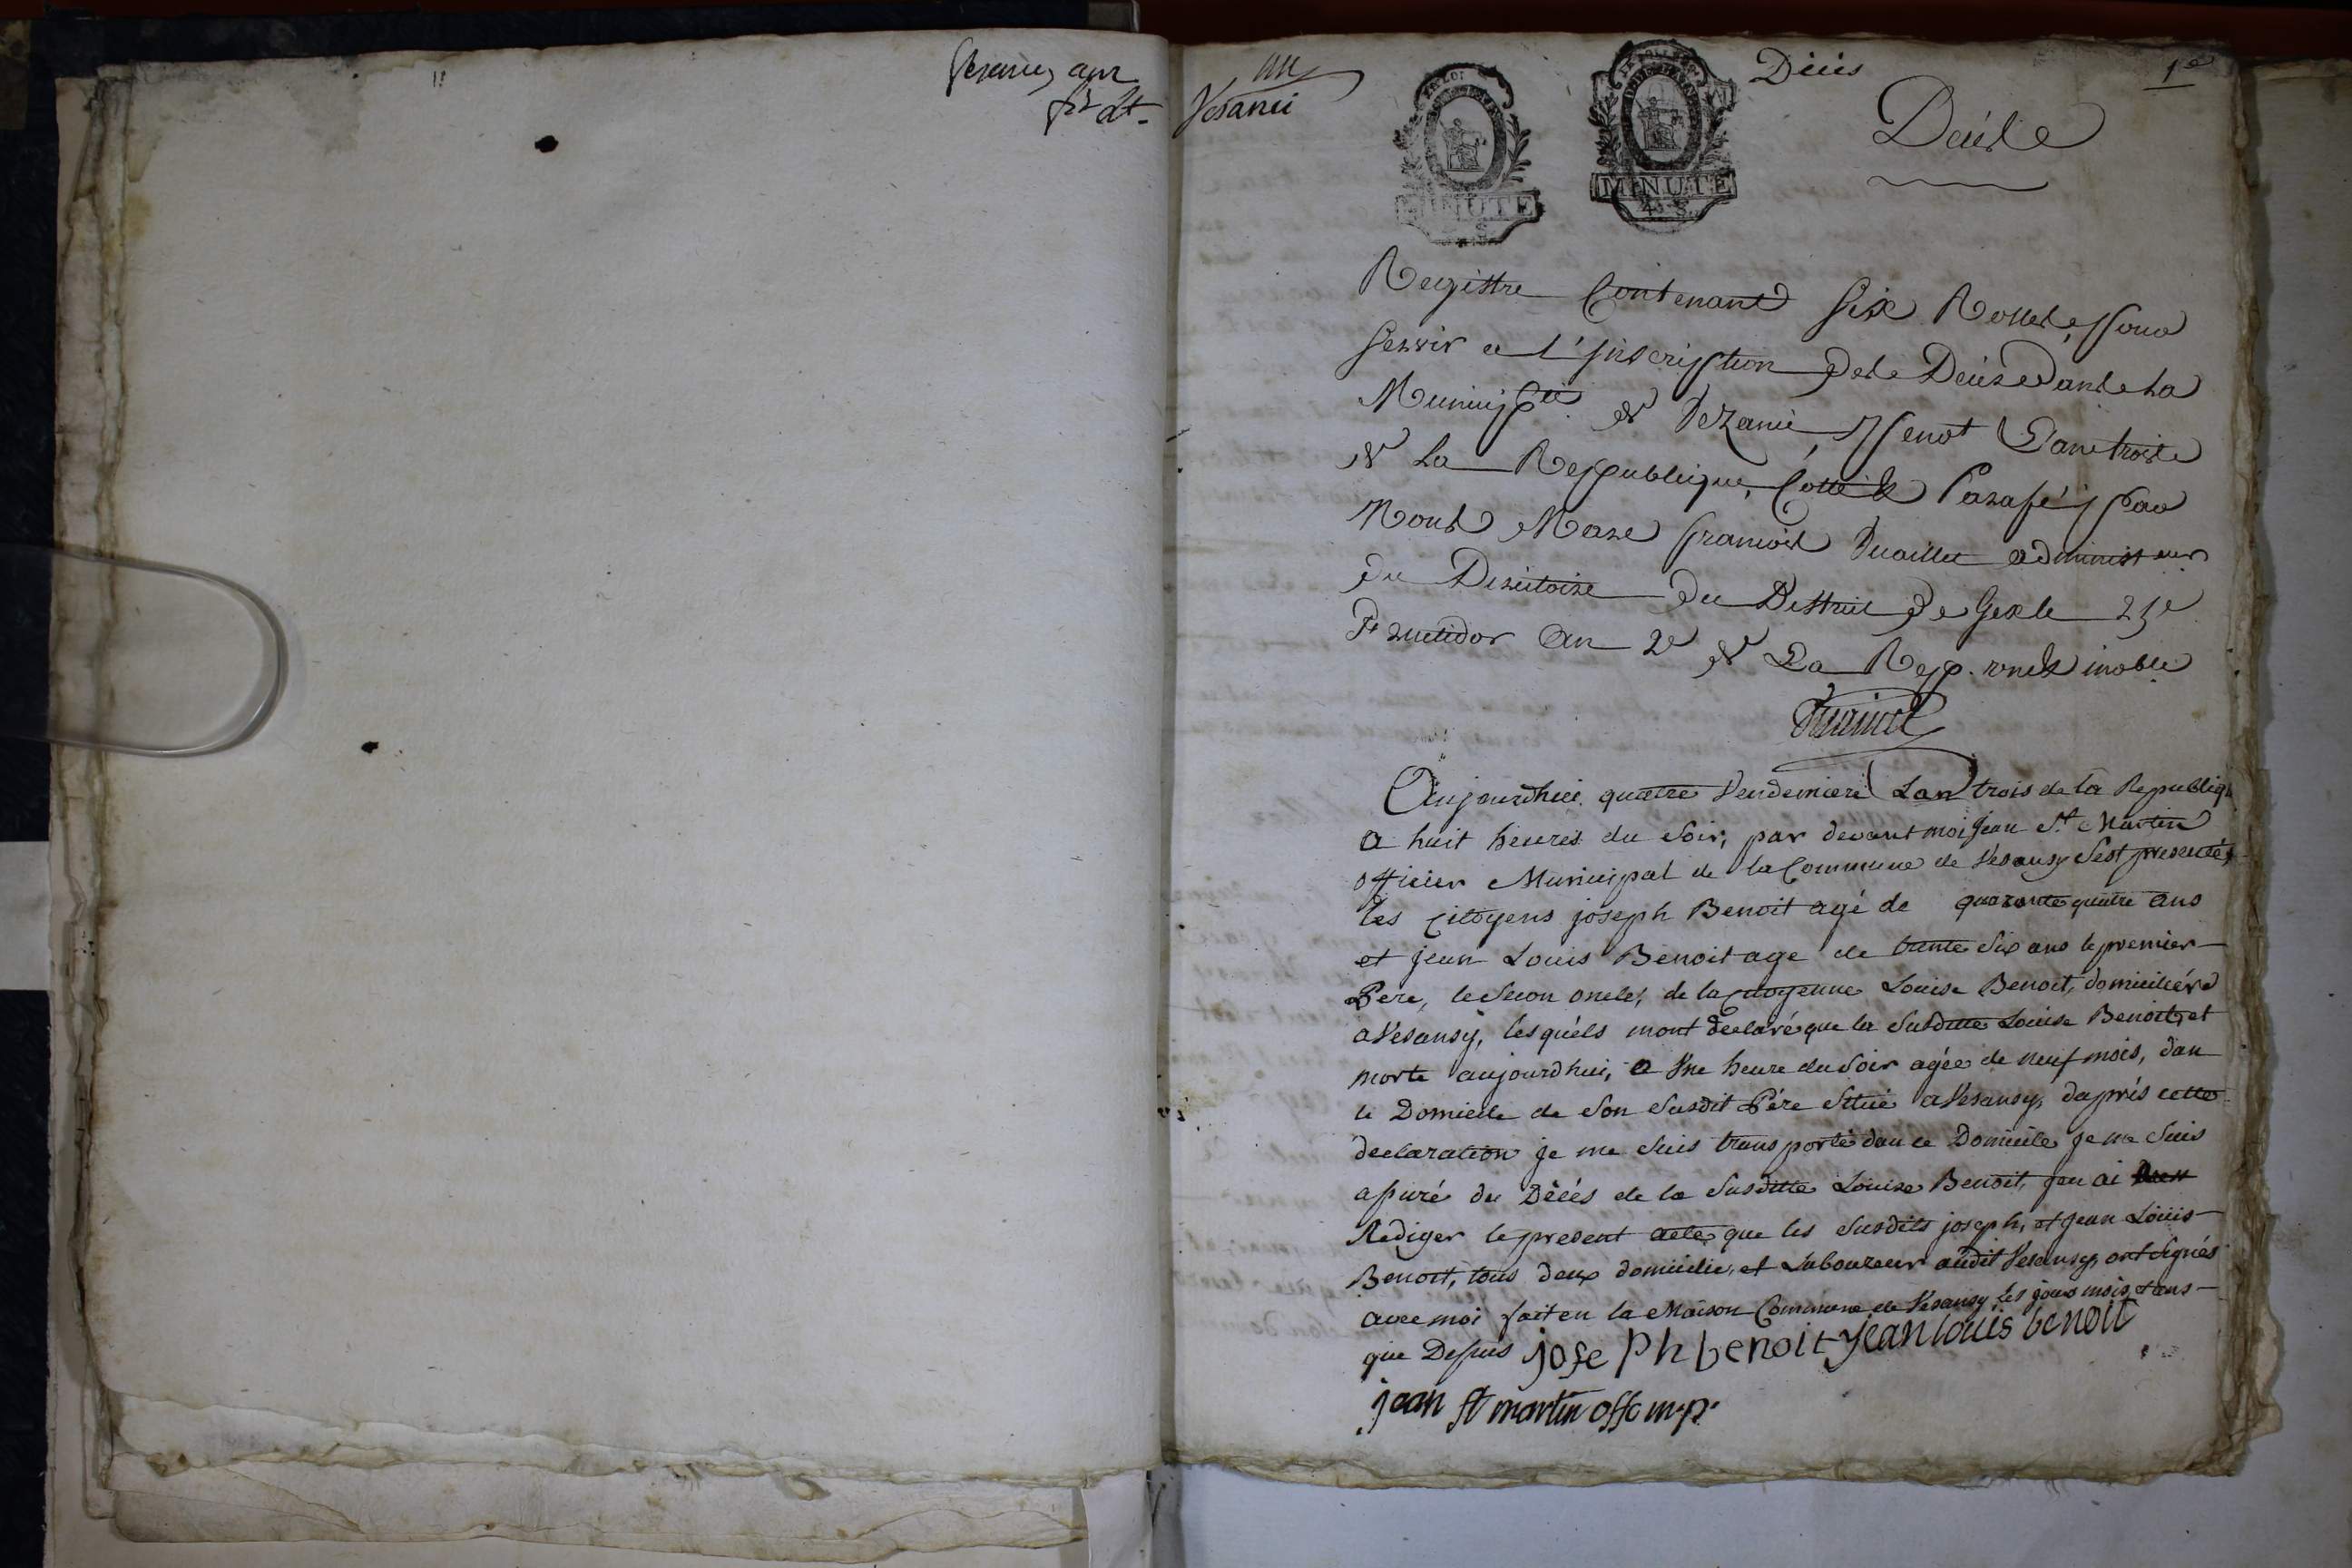 an
Vesanci
Décés
1e
Décés
LA LOI
MINUTE
MINUTE
4 S.
Registre Contenant Six Rolles, pour
Servir a l'Inscription des Décés dans la
Municip.té de Vezanci, pendt L'an trois
de La Republique, Cotté & Parafé par
Nous Marc François administ.eur
du Directoire du District de Gex le 25e
Fructidor an 2e de La Rep. une & ind.ble
Aujourdhui quatre Vendemiere Lan trois de la Republiq
a huit heures du Soir, par devant moi Jean St Martin
officier Municipal de la Commune de Vesansy Sest presentés
les Citoyens joseph Benoit agé de quarante quatre ans
et jean Louis Benoit age de trente Six ans le premier
Pere, le Secon oncle, de la Citoyenne Louise Benoit, domiciliér
a Vesansy, lesquels mont declaré que la Susditte Louise Benoit, et
morte aujourdhui, a Une heure du Soir agée de neuf mois, dan
le Domicile de Son Susdit Pére Situé a Vesansy, dapprés cette
declaration je me Suis transporté dan ce Domicile je me Suis
asuré du Décés de la Susditte Louise Benoit, jen ai
Rediger le present acte que les Susdits joseph, et Jean Louis
Benoit, tous deux domicilie, et Laboureur audit Vesansy, ont Signés
avec moi fait en la Maison Commune de Vesansy les jours mois et ans
que Desus joseph benoit jean louis benoit
jean st martin offc mp.